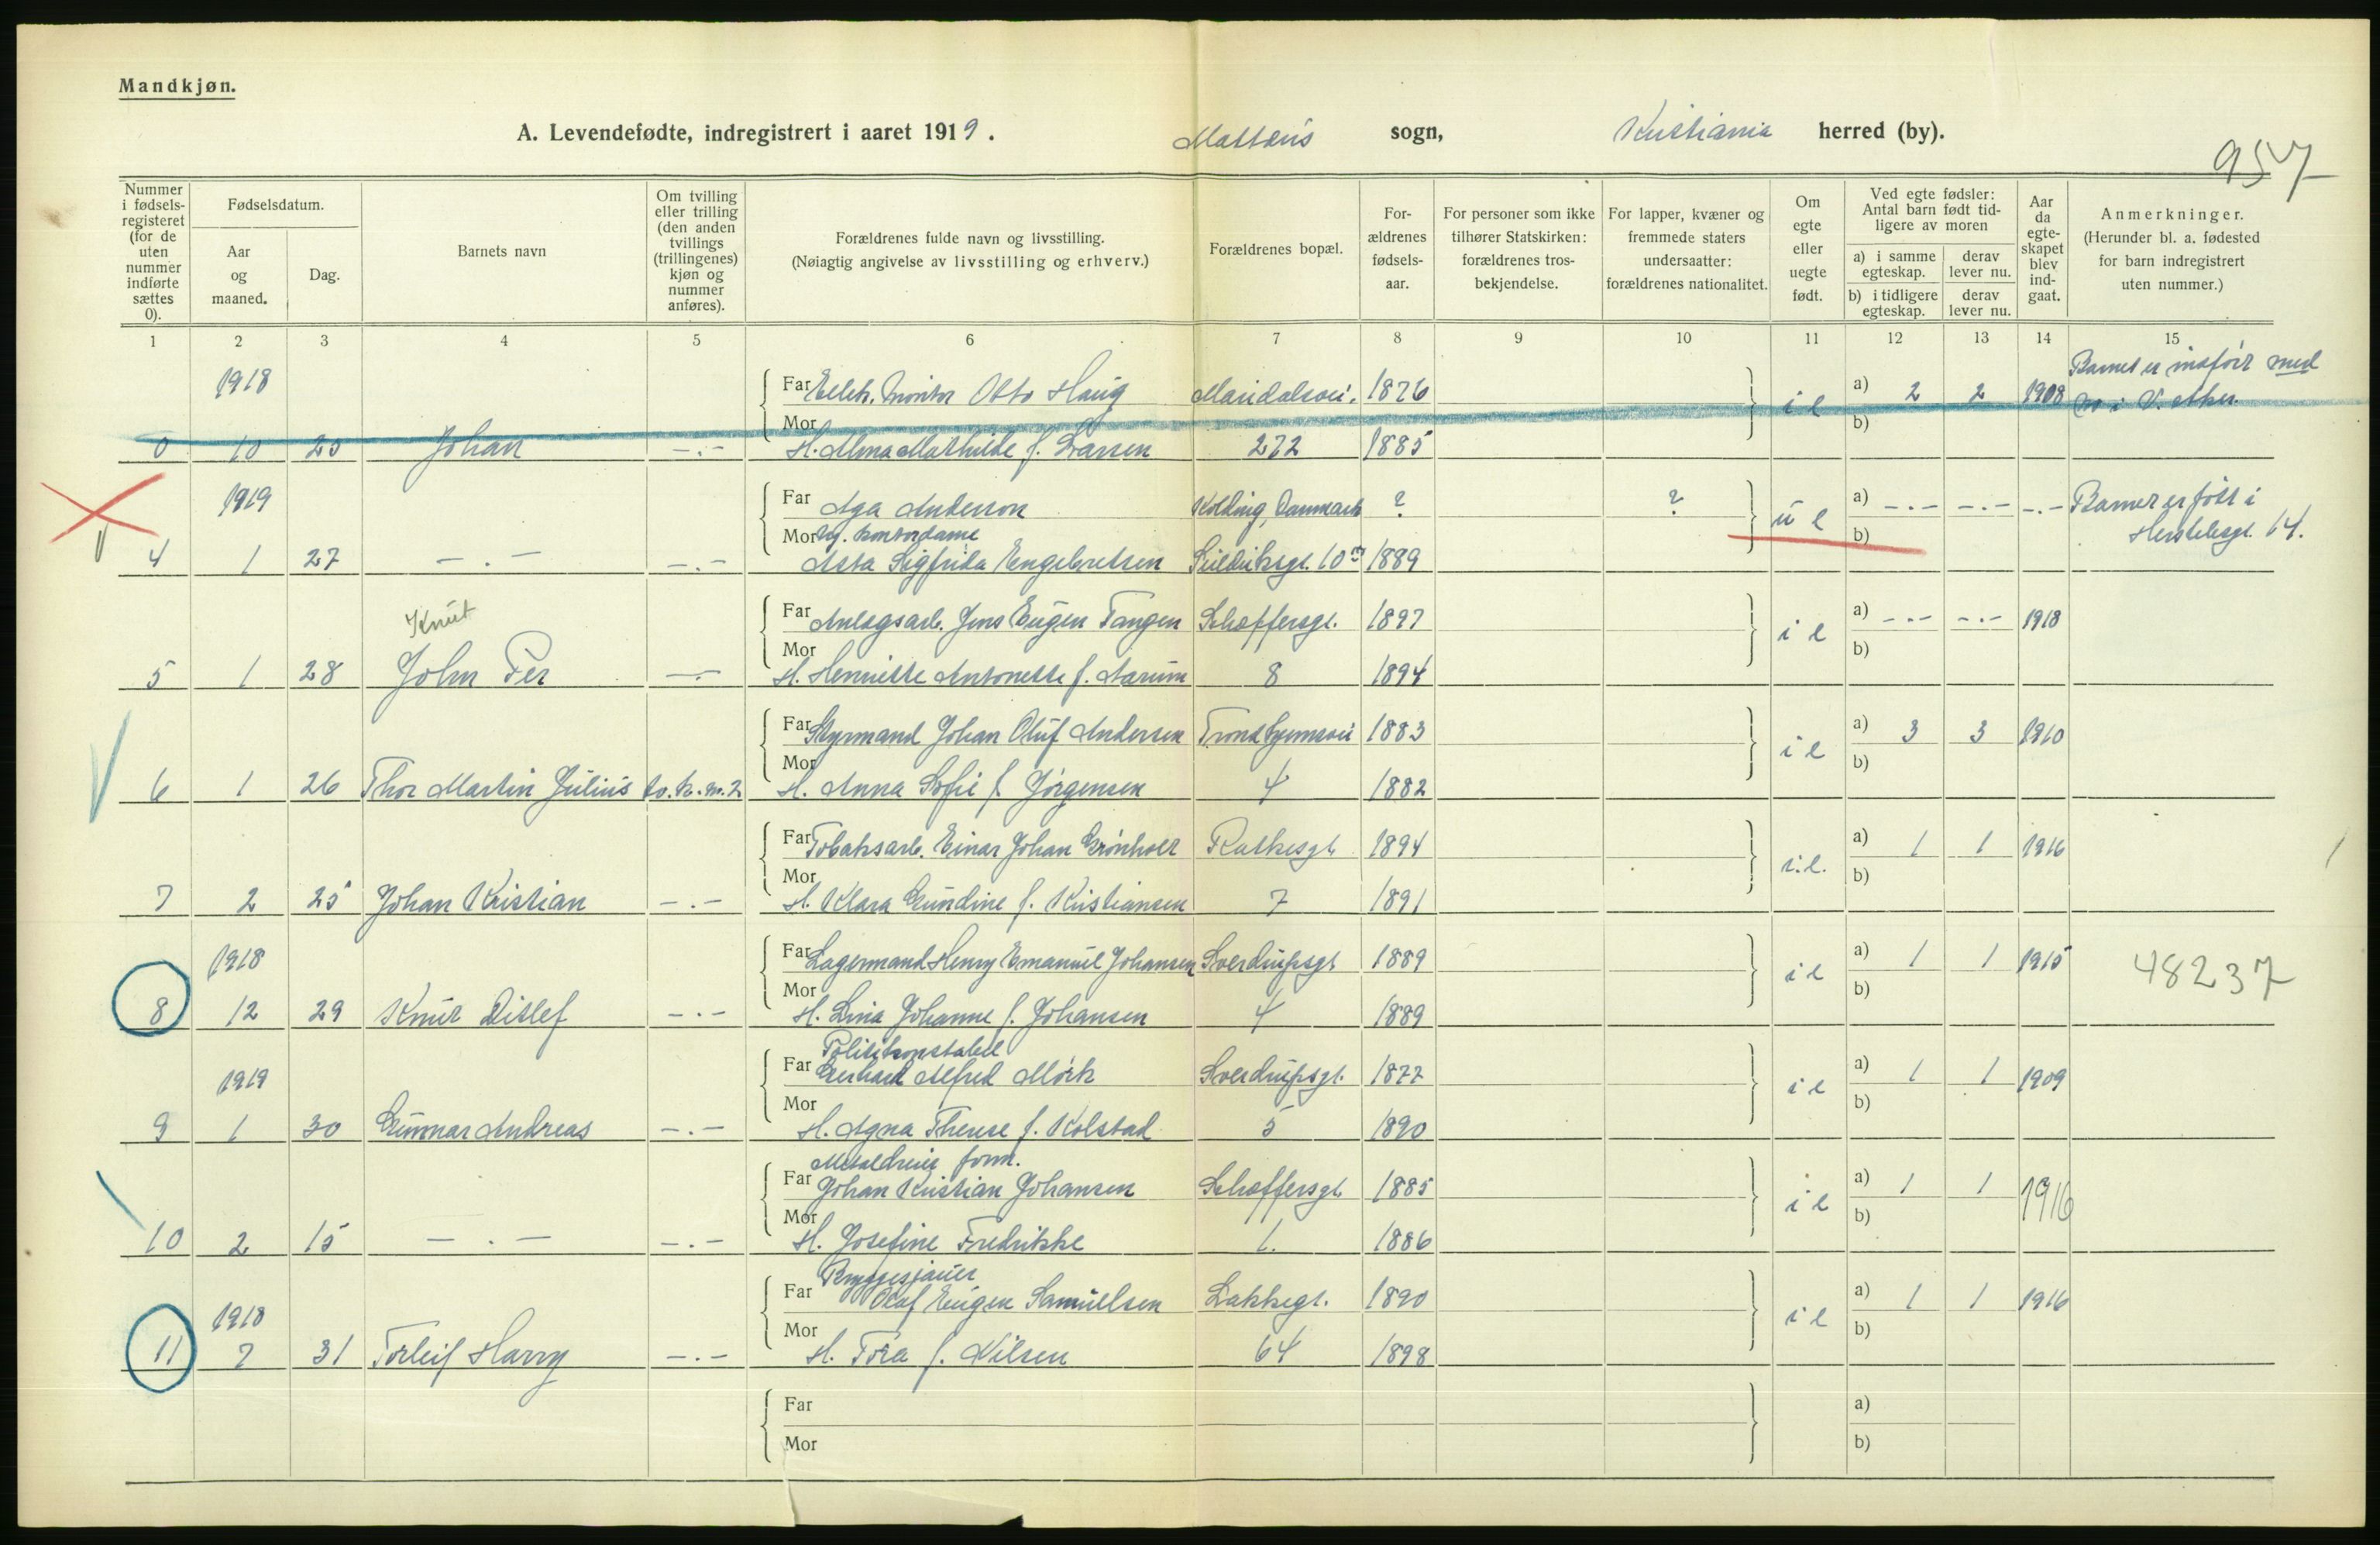 Mandkjøn.
A. Levendefødte, indregistrert i aaret 1919. Mattæus sogn, Kristiania herred (by).
957
Nummer i fødsels-registeret (for de uten nummer indførte sættes 0).
Fødselsdatum.
Aar og maaned.
Dag.
Barnets navn
Om tvilling eller trilling (den anden tvillings (trillingenes) kjøn og nummer anføres).
Forældrenes fulde navn og livsstilling.
(Nøiagtig angivelse av livsstilling og erhverv.)
Forældrenes bopæl.
For-ældrenes fødsels-aar.
For personer som ikke tilhører Statskirken: forældrenes tros-bekjendelse.
For lapper, kvæner og fremmede staters undersaatter: forældrenes nationalitet.
Om egte eller uegte født.
Ved egte fødsler: Antal barn født tid-ligere av moren
a) i samme egteskap. derav lever nu.
b) i tidligere egteskap. derav lever nu.
Aar da egte-skapet blev ind-gaat.
Anmerkninger.
(Herunder bl. a. fødested for barn indregistrert uten nummer.)
1 2 3 4 5 6 7 8 9 10 11 12 13 14 15
1918 Far Elektr. Montør Otto Haug Maridalsvei. 1876 i e a) 2 2 1908 Barnet er indført med
no i V. Aker.
Mor b)
0 10 20 Johan -.- H. Alma Mathilde f. Larsen 272 1885
1919 Far Aga Anderson Kolding, Danmark ? ? u e a) -.- -.- -.- Barnet er født i
Mor Ug. Kontordame b) Herslebsgt. 14.
4 1 27 - . - -.- Asta Sigfrida Engebretsen 10 1889
Knut Far Anlægsarb. Jens Eugen Tangen Schæffersgt. 1897 i e a) -.- -.- 1918
Mor b)
5 1 28 John Per -.- H. Henriette Antonette f. Aarum 8 1894
Far Styrmand Johan Oluf Andersen Trondhjemsvei 1883 i e a) 3 3 1910
Mor b)
6 1 26 Thor Martin Julius tv. k. nr. 2 H. Anna Sofie f. Jørgensen 4 1882
Far Tobaksarb. Einar Johan Grønholt Rathkesgt. 1894 i.e. a) 1 1 1916
Mor b)
7 2 25 Johan Kristian -.- H. Klara Gundine f. Kristiansen 7 1891
1918 Far Lagermand Henry Emanuel Johansen Sverdrupsgt. 1889 i e a) 1 1 1915 48237
Mor b)
8 12 29 Knut Ditlef -.- H. Lina Johanne f. Johansen 4 1889
Politikonstabel
1919 Far Gerhard Alfred Mørk Sverdrupsgt. 1877 i e a) 1 1 1909
Mor b)
9 1 30 Gunnar Andreas -.- H. Agna Therese f. Kolstad 5 1890
Metaldreier form.
Far Johan Kristian Johansen Schæffersgt. 1885 i e a) 1 1 1916
Mor b)
10 2 15 - . - -.- H. Josefine Fredrikke 1. 1886
Bryggesjauer
1918 Far Olaf Eugen Samuelsen Lakkegt. 1890 i e a) 1 1 1916
Mor b)
11 7 31 Torleif Harry -.- H. Tora f. Nilsen 64 1898
Far a)
Mor b)